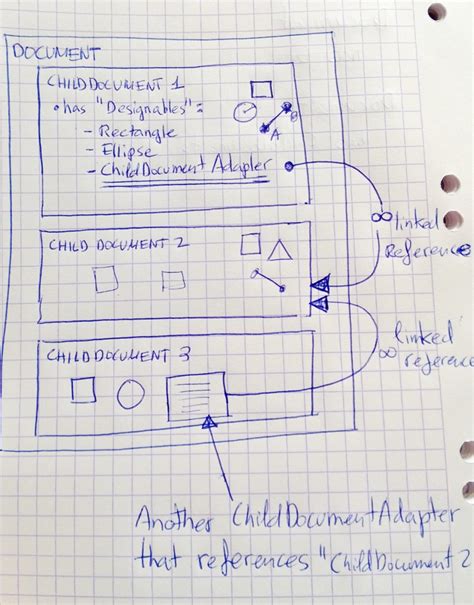 DOCUMENT
CHILD DOCUMENT 1
• has "Designables":
- Rectangle
- Ellipse
- ChildDocument Adapter
A
B
∞ linked
Reference
CHILD DOCUMENT 2
linked
∞ reference
CHILD DOCUMENT 3
Another ChildDocumentAdapter
that references "ChildDocument 2